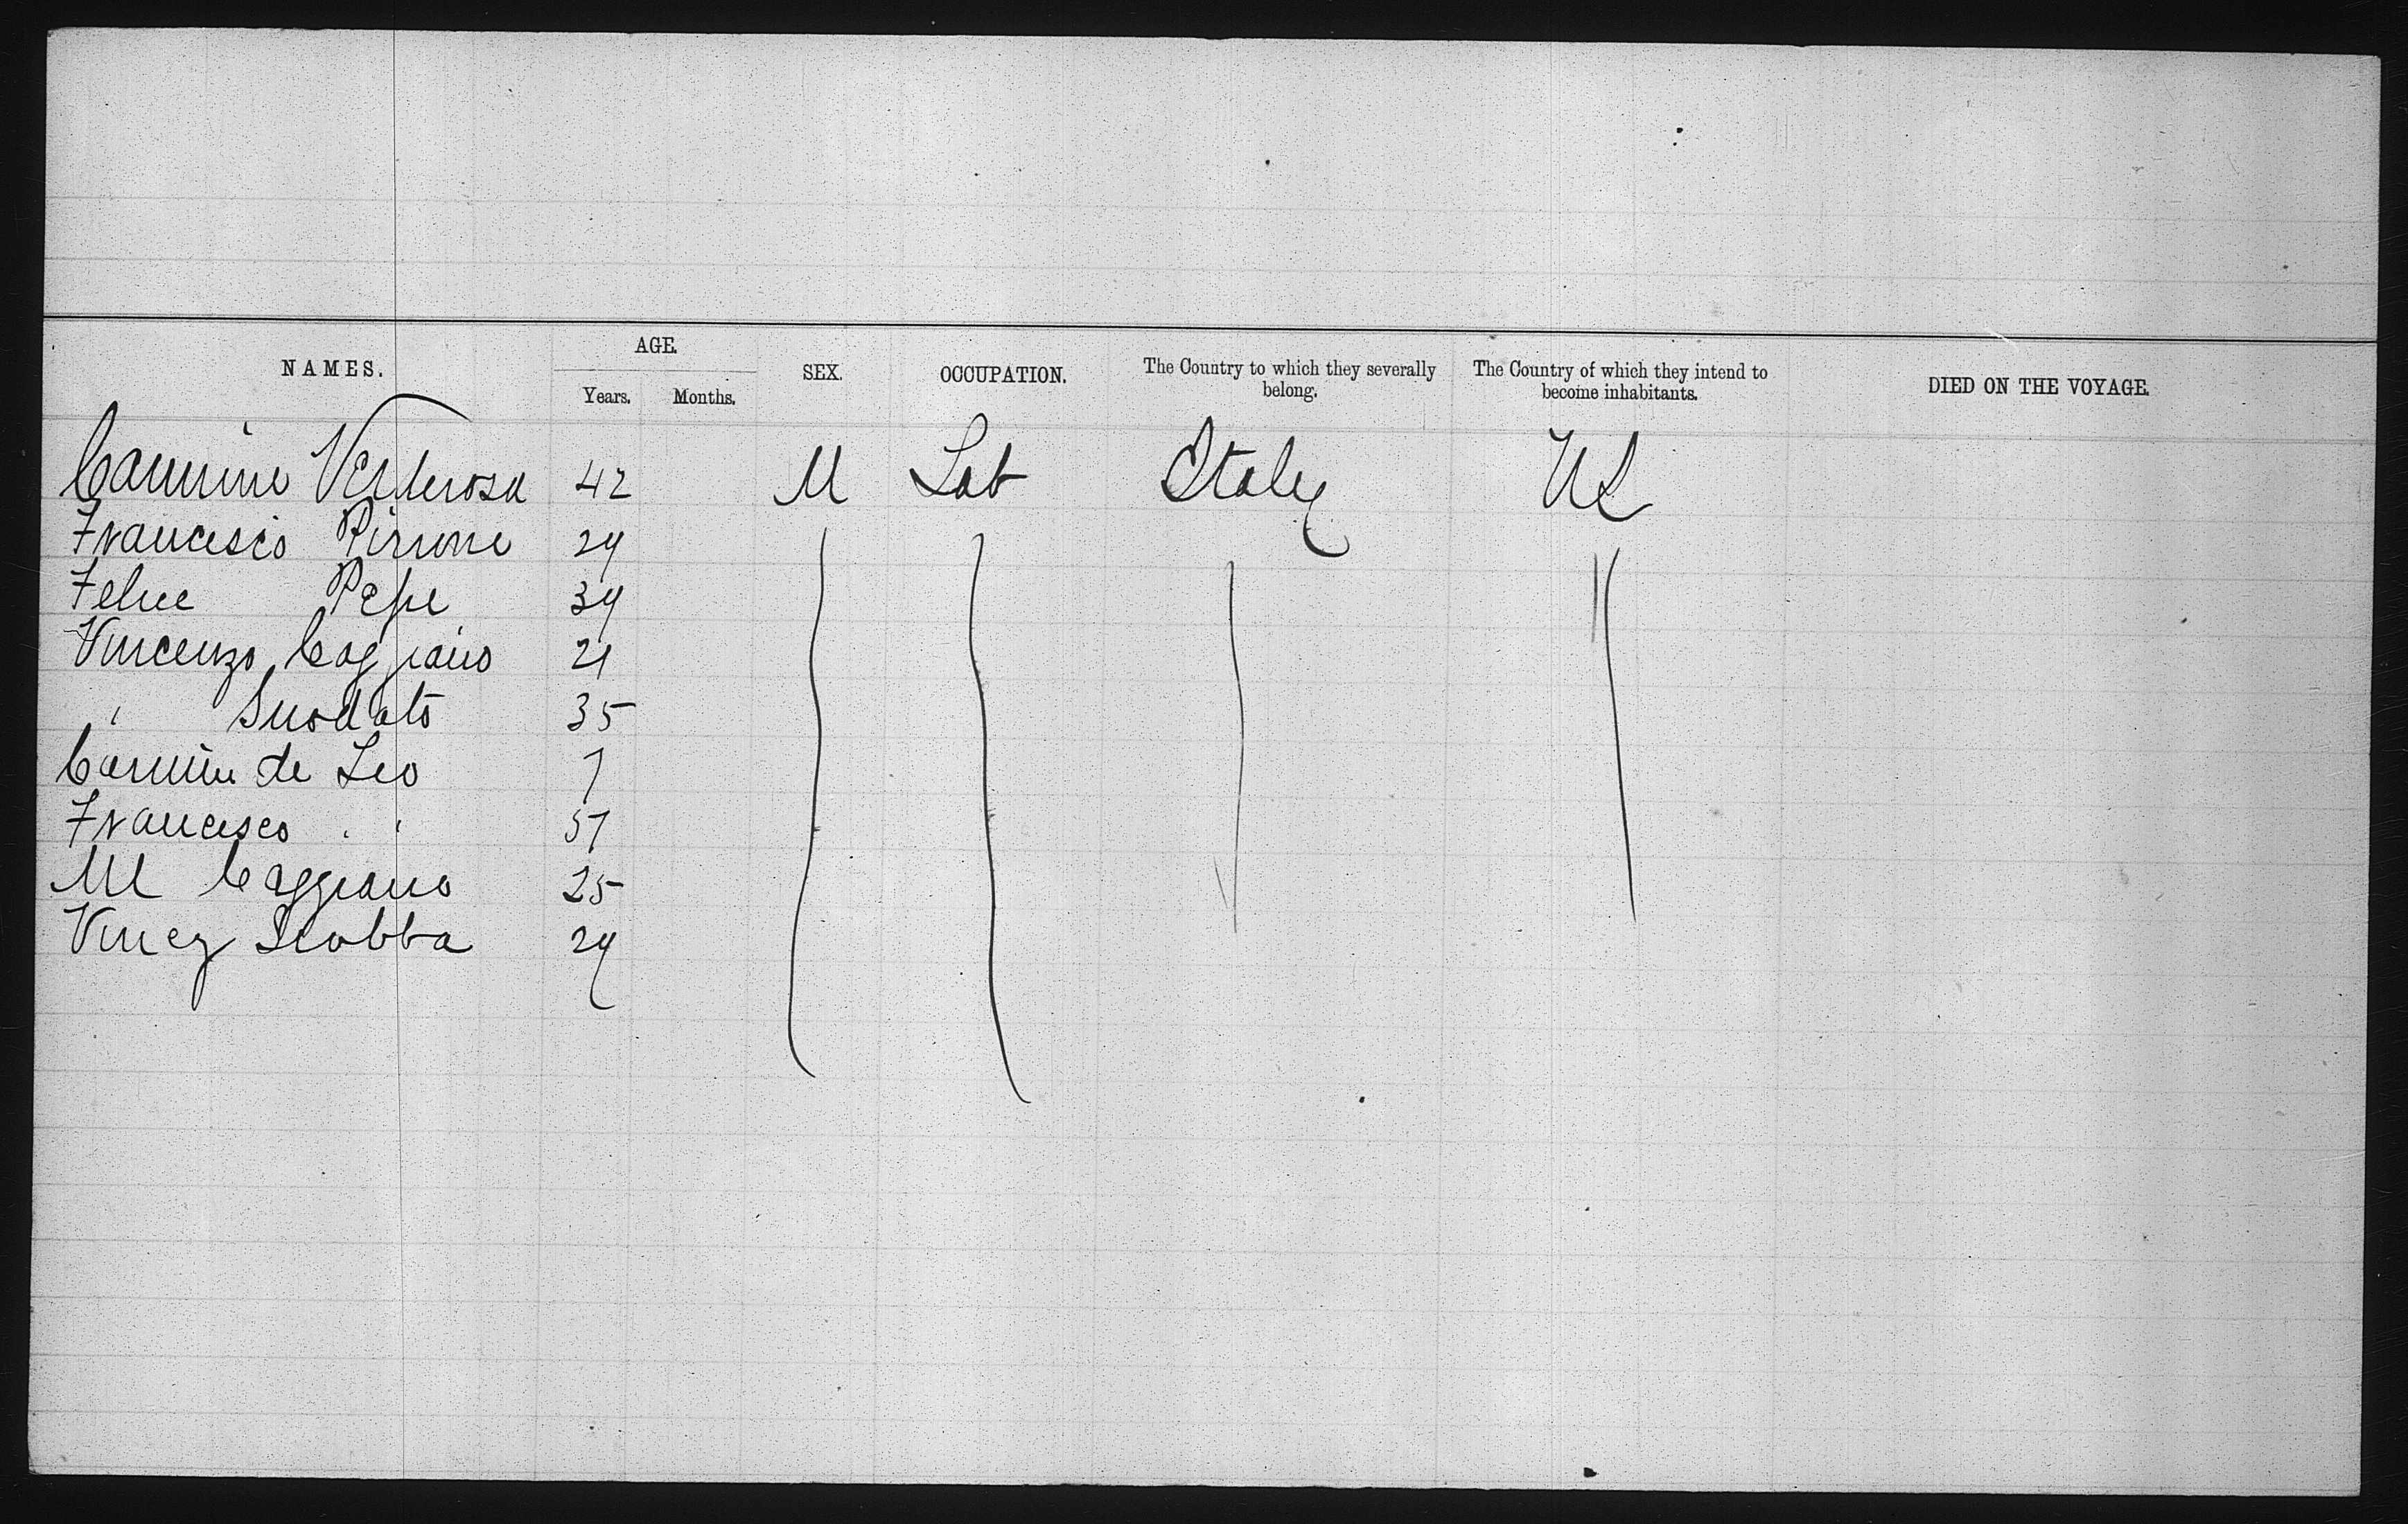 NAMES. AGE. SEX. OCCUPATION. The Country to which they severally belong. The Country of which they intend to become inhabitants. DIED ON THE VOYAGE.
Years. Months.
Carmine Verderosa 42 M Lab Italy US
Francesco Pirrone 24
Felice Pepe 34
Vincenzo Caggiano 21
" Snodato 35
Carmin de Leo 7
Francesco " " 57
M Caggiano 25
Vincz Scobba 24